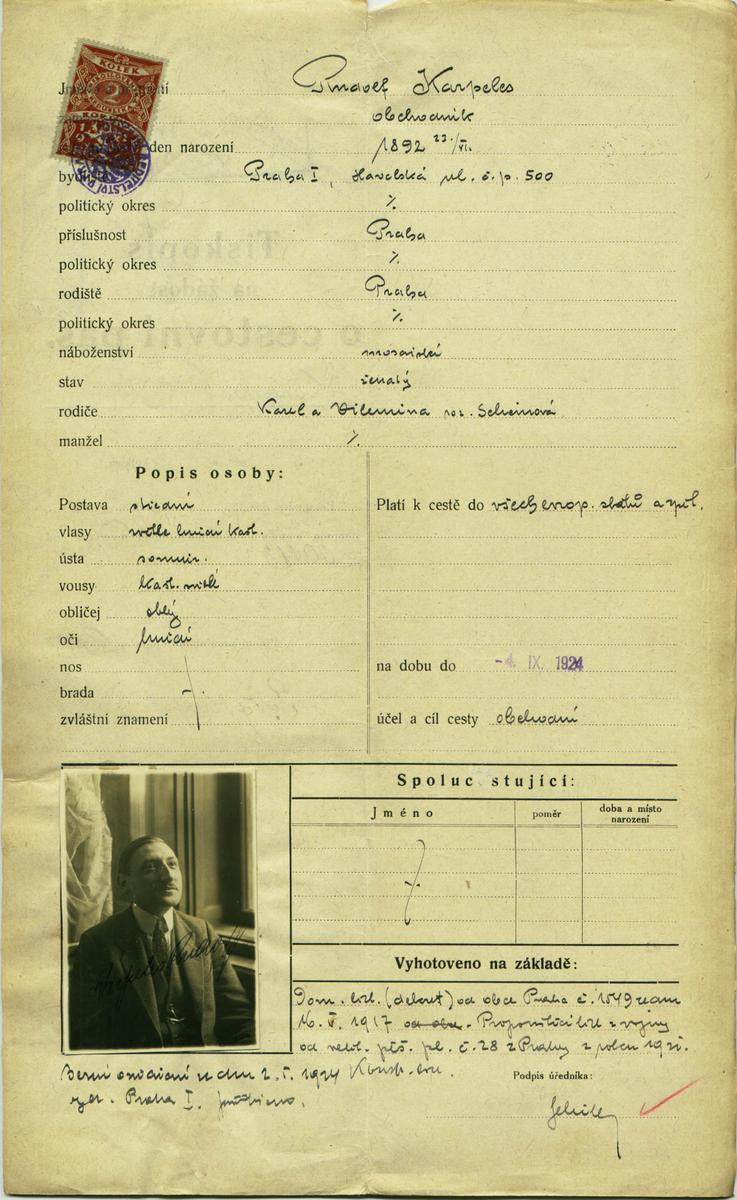 KOLEK
2
Jméno Rudolf Karpeles
obchodník
den narození 1892 23./VI.
bydliště Praha I, Havelská ul. č.p. 500
politický okres %
příslušnost Praha
politický okres %
rodiště Praha
politický okres %
náboženství mosaické
stav ženatý
rodiče Karel a Vilemína roz. Scheinová
manžel %
Popis osoby:
Postava střední
vlasy světle hnědé kašt.
ústa souměr.
vousy kašt.
obličej oblý
oči hnědé
nos
brada
zvláštní znamení
Platí k cestě do všech evrop. států a zpět.
na dobu do -4. IX. 1924
účel a cíl cesty obchodní
Spolucestující:
Jméno poměr doba a místo narození
Vyhotoveno na základě:
Dom. list. (dekret) od obce Praha č. 1549 ze dne
16. V. 1917 od obce. Propouštěcí list z vojny
od pěš. pl. č. 28 z Prahy z roku
ze dne 2. I. 1924
Praha I.
Podpis úředníka: